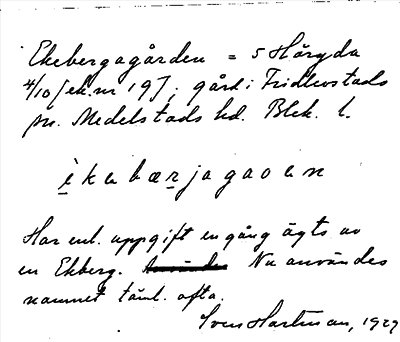 Ekebergagården = 5 Häryda
4/10 [ek. nr 19]; gård i Fridlevstads
sn. Medelstads hd. Blek. l.
ìkebærjagaoen
Har enl. uppgift en gång ägts av
en Ekberg. Nu användes
namnet täml. ofta.
Sven Hartman, 1929